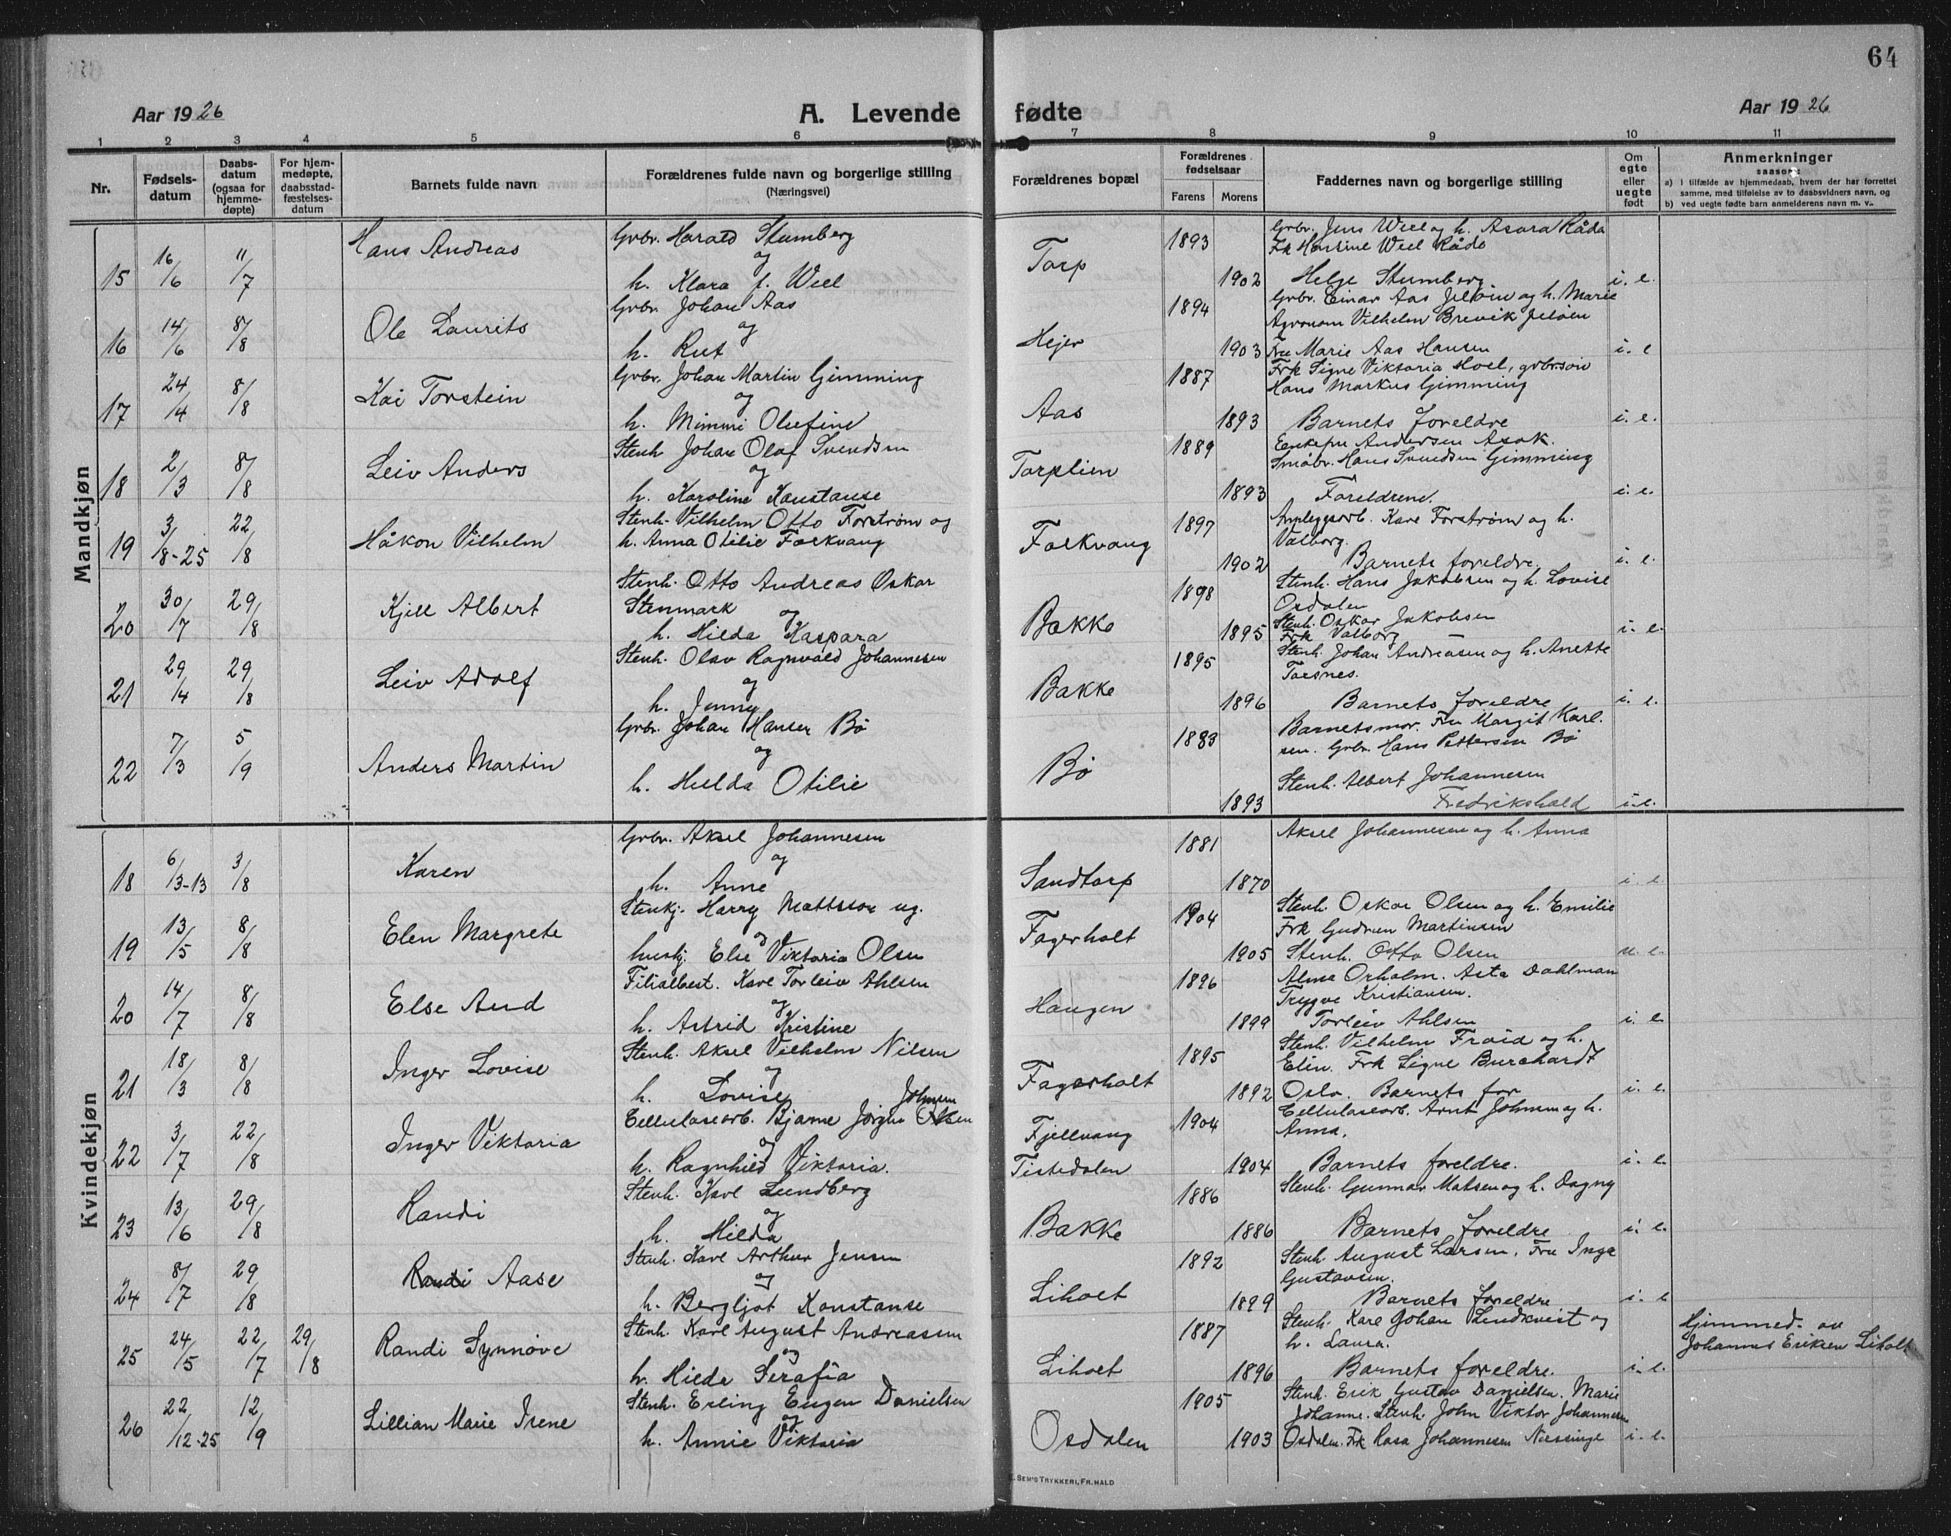 64
Aar 1926
A. Levende fødte
Aar 1926
1 2 3 4 5 6 7 8 9 10 11
Nr.
Fødsels-
datum
Daabs-
datum
(ogsaa for
hjemme-
døpte)
For hjem-
medøpte,
daabsstad-
fæstelses-
datum
Barnets fulde navn
Forældrenes fulde navn og borgerlige stilling
(Næringsvei)
Forældrenes bopæl
Forældrenes
fødselsaar
Farens Morens
Faddernes navn og borgerlige stilling
Om
egte
eller
uegte
født
Anmerkninger
saasom
a) I tilfælde av hjemmedaab, hvem der har forrettet
samme, med tilføielse av to daabsvidners navn, og
b) ved uegte fødte barn anmelderens navn m. v.
Mandkjøn
15 16/6 11/7 Hans Andreas
Grbr. Harald Stumberg
og
h. Klara f. Wiel
Torp 1893 1902
Grbr. Jens Wiel og h. Asora Råde
Frk Martine Wiel Råde
Helge Stumberg i. e.
16 14/6 8/8 Ole Laurits
Grbr. Johan Aas
og
h. Rut
Hejer 1894 1903
Grbr. Einar Aas Jeløen og h. Marie
Agronom Vilhelm Brevik Jeløen
Fru Marie Aas Hansen i. e
17 24/4 8/8 Kai Torstein
Grbr. Johan Martin Gimming
og
h. Mimmi Olufine
Aas 1887 1893
Frk Signe Viktoria Hoel, grbr.søn
Hans Markus Gimming
Barnets foreldre i. e.
18 2/3 8/8 Leiv Anders
Stenh Johan Olaf Svendsen
og
h. Karoline Konstanse
Torplien 1889 1893
Enkefru Andersen Asak.
Småbr. Hans Svendsen Gimming
Foreldrene. i. e.
19 3/8-25 22/8 Håkon Vilhelm
Stenh. Vilhelm Otto Forstrøm og
h. Anna Otilie Falkvang
Falkvang 1897 1902
Anleggsarb. Kare Forstrøm og h.
Valborg.
Barnets foreldre. i. e.
20 30/7 29/8 Kjell Albert
Stenh. Otto Andreas Oskar
Stenmark
og
h. Hilda Kaspara
Bakke 1898 1895
Stenh. Hans Jakobsen og h. Lovise
Osdalen
Stenh. Oskar Jakobsen
Frk Valborg i. e.
21 29/4 29/8 Leiv Adolf
Stenh. Olav Ragnvald Johannesen
og
h. Jenny
Bakke 1895 1896
Stenh. Johan Andreasen og h. Anette
Torsnes.
Barnets foreldre i. e.
22 7/3 5/9 Anders Martin
Grbr. Johan Hansen Bø
og
h. Hulda Otilie
Bø 1883 1893
Barnetsmor. Fru Margit Karl-
sen. Grbr. Hans Pettersen Bø
Stenh. Albert Johannesen
Fredrikshald i. e.
Kvindekjøn
18 6/3-13 3/8 Karen
Grbr. Aksel Johannesen
og
h. Anne
Sandtorp 1881 1870
Aksel Johannesen og h. Anna
i. e.
19 13/5 8/8 Elen Margrete
Stenkj. Harry Mattsson ug.
og
huskj. Else Viktoria Olsen
Fagerholt 1904 1905
Stenh. Oskar Olsen og h. Emilie
Frk Gudrun Martinsen
Stenh. Otto Olsen u. e.
20 14/7 8/8 Else Aud
Filialbest. Karl Torleiv Ahlsen
og
h. Astrid Kristine
Haugen 1896 1899
Alma Orholm. Asta Dahlman
Trygve Kristiansen.
Torleiv Ahlsen i. e
21 18/3 8/8 Inger Lovise
Stenh. Aksel Vilhelm Nilsen
og
h. Lovise
Fagerholt 1895 1892
Stenh. Vilhelm Froid og h.
Elin. Frk Signe Burchardt
Oslo. Barnets for i. e.
22 3/7 22/8 Inger Viktoria
Johnsen
Cellulosearb. Bjarne Jörgen Olsen
og
h. Ragnhild Viktoria.
Fjellvang
Tistedalen 1904 1904
Cellulosearb. Arnt Johnsen og h.
Anna.
Barnets foreldre. i. e.
23 13/6 29/8 Randi
Stenh. Karl Lundberg
og
h. Hilda
Bakke 1886 1886
Stenh. Gunnar Matsen og h. Dagny
Barnets foreldre i. e.
24 8/7 29/8 Randi Aase
Stenh. Karl Arthur Jensen
og
h. Bergljot Konstanse
Liholt 1892 1899
Stenh. August Larsen. Fru Inga
Gustavsen.
Barnets foreldre i. e
25 24/5 22/7 29/8 Randi Synnøve
Stenh. Karl August Andreassen
og
h. Hilda Serafia
Liholt 1887 1896
Stenh. Karl Johan Lindkvist og
h. Laura.
Barnets foreldre. i. e.
Hjemmed. av
Johannes Eriksen Liholt
26 22/12-25 12/9 Lillian Marie Irene
Stenh. Erling Eugen Danielsen
og
h. Annie Viktoria
Osdalen 1905 1903
Stenh. Erik Gustav Danielsen. Marie
Johanne. Stenh. John Viktor Johannesen
Osdalen. Frk Rosa Johannesen i. e.
SEM'S TRYKKERI, FR.HALD